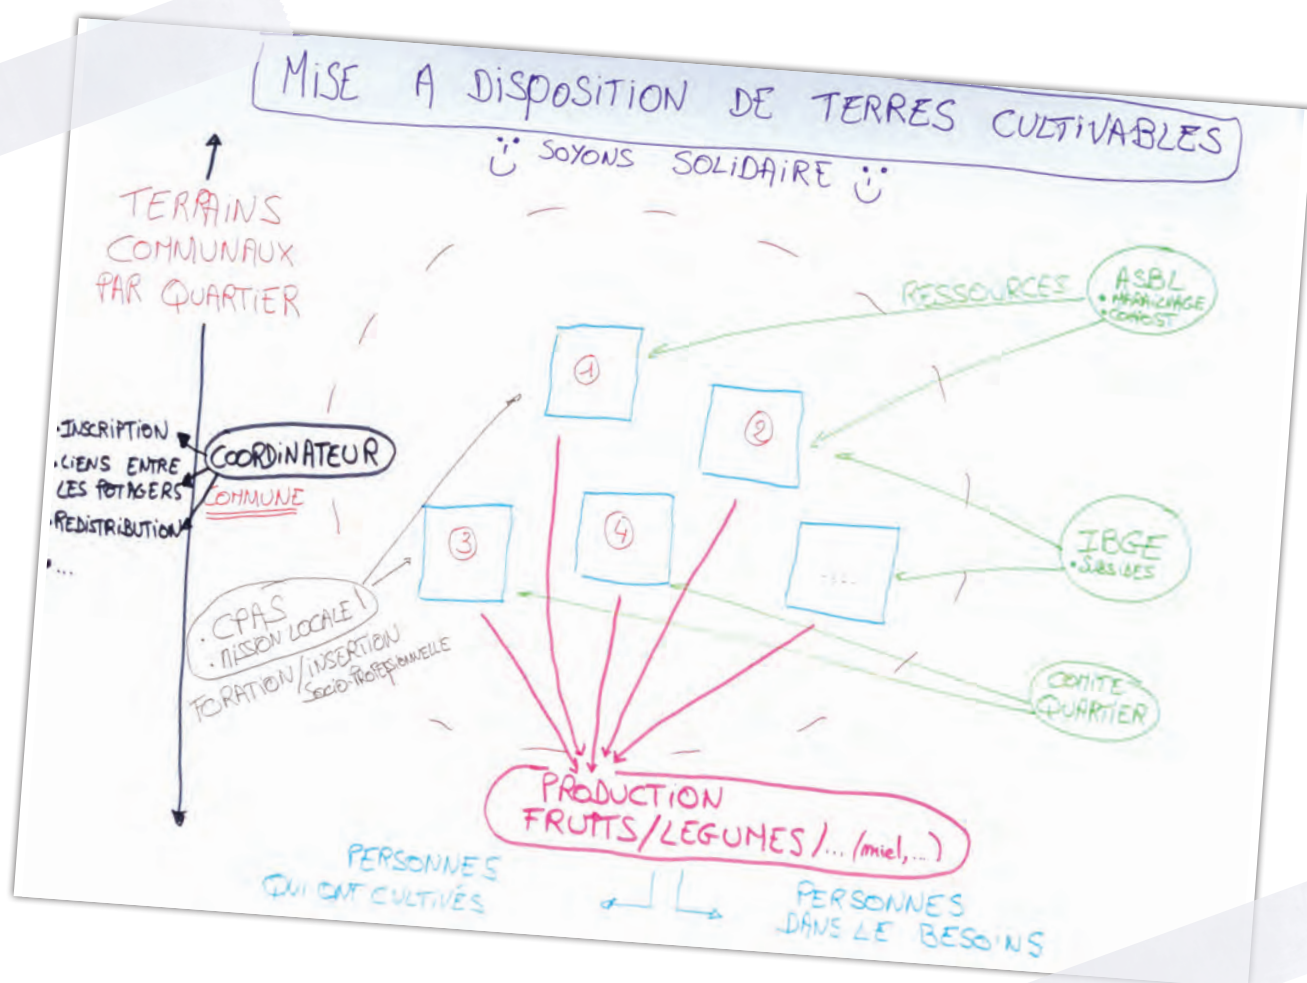 MISE A DISPOSITION DE TERRES CULTIVABLES
SOYONS SOLIDAIRE
TERRAINS
COMMUNAUX
PAR QUARTIER
COORDINATEUR
COMMUNE
• INSCRIPTION
• LIENS ENTRE
LES POTAGERS
• REDISTRIBUTION
• ...
• CPAS
• MISSION LOCALE
FORATION/INSERTION
SOCIO-PROFESSIONNELLE
1
2
3
4
...
RESSOURCES
ASBL
• MARAICHAGE
• COMPOST
IBGE
• SUBSIDES
COMITE
QUARTIER
PRODUCTION
FRUITS/LEGUMES/... (miel,...)
PERSONNES
QUI ONT CULTIVÉS
PERSONNES
DANS LE BESOINS